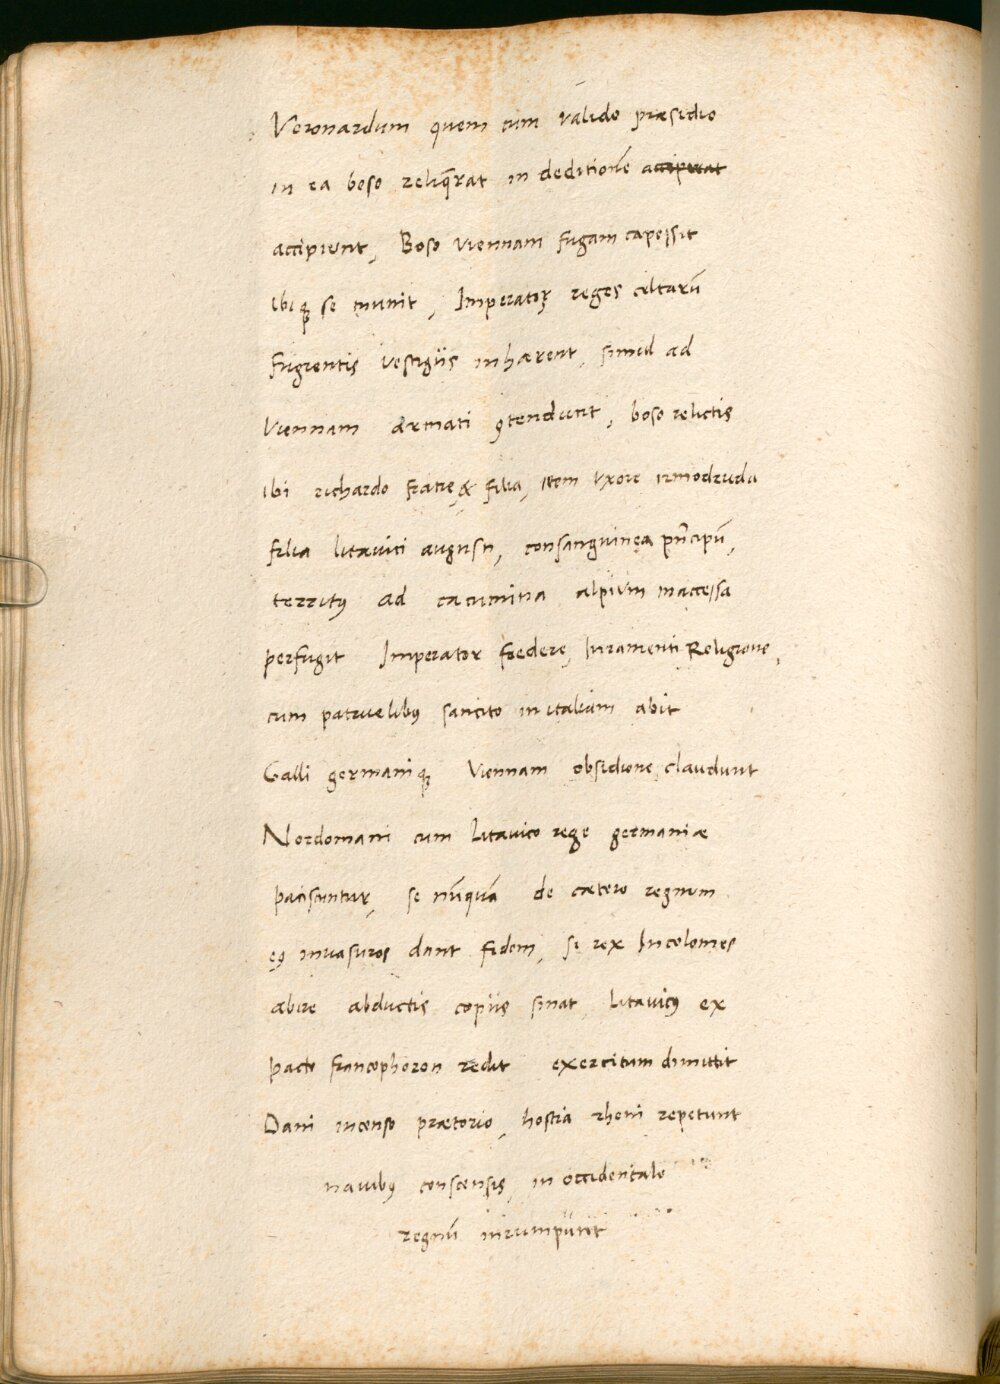 Veronardum quem cum valido præsidio
in ea boso reliq̄rat in deditionē accipiunt
accipiunt, Boso viennam fugam capessit
ibiqꝫ se munit, Imperator, reges celtarū
fugientis vestigiis inhærent, simul ad
Viennam armati ꝯtendunt, boso relictis
ibi richardo fratre, & filia, item vxore irmodruda
filia litauici augusti, consanguinea prīcipū,
territꝰ ad cacumina alpium inaccessa
perfugit Imperator foedere, Iuramenti Religione,
cum patruelibꝰ sancito in italiam abit
Galli germaniqꝫ Viennam obsidione claudunt
Nordomani cum Litauico rege germaniæ
paciscuntur, se nūquā de cætero regnum
eꝰ inuasuros dant fidem, si rex Incolomes
abire abductis copiis sinat, Litauicꝰ ex
pacto francophoron redit exercitum dimittit
Dani incenso prætorio, hostia rheni repetunt
nauibꝰ conscensis, in occidentale
regnū inrumpunt